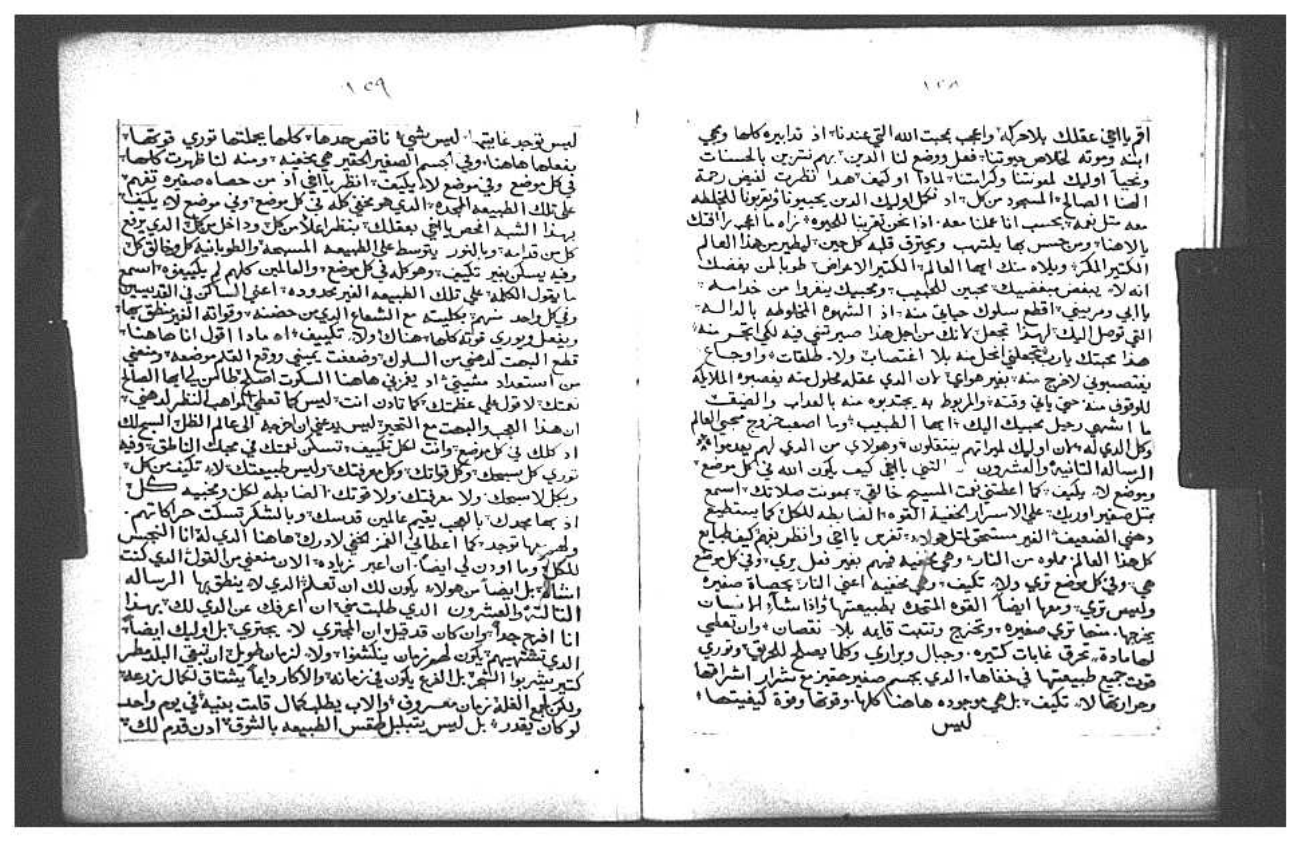 ١٢٨
اقم يا اخي عقلك بلا حركه واعجب بمحبت الله التي عندنا اذ تدابيره كلها ومجي
ابنه وموته لخلاص حيوتنا فعل ووضع لنا الدين بهم نتزين بالحسنات
ونحيا اوليك لمعونتنا وكرامتنا لماذا او كيف هدا نظرت لفيض رحمة
الهنا الصالح المسجود من كل اد لكل اوليك الدين يحبونا ويقربونا للخلطه
معه مثل نعمه يحسب انا عملنا معه اذا نحن تقربنا للحيوه نراه ما اعجب رافتك
يا الاهنا ومن حسس بها يلتهب ويحترق قلبه كل حين ليطير من هدا العالم
الكتير المكر ويلاه منك ايها العالم الكتير الاعراض طوبا لمن بغضك
انه لا يبغض مبغضيك محبين للحبيب ومحبيك ينفروا من خدامه
يا ابي ومربيني اقطع سلوك حياتي منه اذ الشهوه المخلوطه بالداله
التي توصل اليك لهدا تجعل لانك من اجل هدا صيرتني فيه لكي اتجر منه
هدا محبتك يارب تجعلني انحل منه بلا اغتصاب ولا طلقات واوجاع
يغتصبوني لاخرج منه بغير هواي لان الدي عقله محلول منه يغصبوه الملايكه
للوقوف منه حتي ياتي وقته والمربوط به يجتدبوه منه بالعداب والضيقه
ما اشهي رحيل محبيك اليك ايها الطبيب وما اصعب خروج محبي العالم
وكل الدي له لان اوليك لميراتهم ينتقلون وهولاي من الدي لهم يعدموا
الرساله التانيه والعشرون التي يا اخي كيف يكون الله في كل موضع
وبموضع لا يكيف كما اعطتني قوت المسيح خالقي بمعونت صلاتك اسمع
متل صغير اوريك علي الاسرار الخفيه القوه الضابطه للكل كما يستطيع
دهني الضعيف الغير مستحق لمتل هولاء تفرس يا اخي وانظر بفهم كيف طبايع
كل هدا العالم مملوه من النار وهي مخفيه فيهم بغير فعل يري وفي كل موضع
هي وفي كل موضع تري ولا تكيف وهي مخفيه اعني النار بحصاة صغيره
وليس تري ومعها ايضا القوه المتحده بطبيعتها واذا شاء الانسان
يخرجها منها تري صغيره وتخرج وتتبت قايمه بلا نقصان وان تعطي
لها ماده تحرق غابات كتيره وجبال وبراري وكلما يصلح للحريق وتوري
قوت جميع طبيعتها في خفاها الدي بجسم صغير حقير مع شرار اشراقها
وحرارتها لا تكيف بل هي موجوده هاهنا كلها وقوتها وقوة كيفيتها
ليس
١٢٩
ليس توجد غايتها ليس بشي ناقص حدها كلها بجملتها توري قوتها
بفعلها هاهنا وفي الجسم الصغير الحقير هي مخفيه ومنه لنا ظهرت كلها
في كل موضع وفي موضع لا يكيف انظر يا اخي اد من حصاه صغيره تفهم
علي تلك الطبيعه الممجده الدي هو مخفي كله في كل موضع وفي موضع لا يكيف
بهدا الشبه افحص يا اخي بعقلك بنظر اعلا من كل وداخل من كل الدي يرتفع
كل من قدامه وبالنور يتوسط علي الطبيعه المسبحه والطوبانيه كل وخالق كل
وفيه يسكن بغير تكييف وهو كله في كل موضع والعالمين كلهم لم يكيفوه اسمع
ما يقول الكلمه علي تلك الطبيعه الغير محدوده اعني الساكن في القديسين
وفي كل واحد منهم بكليته مع الشعاع الدي من حضنه وقواته الغير منطق بها
ويفعل ويوري قوته كلها هناك ولا تكييف اه مادا اقول انا هاهنا
قطع البحت لدهني من السلوك وضعفت يميني ووقع القلم من موضعه ومنعني
من استعداد مشيتي اد يغزني هاهنا السكوت اصلح طاكس لي ايها الصالح
نعمتك لاقول علي عظمتك كما تادن انت ليس كما تعطي المواهب النظر لدهني
ان هدا العجب والبحت مع التحير ليس يدعني ان اخرجه الي عالم الظل السبح لك
اد كلك في كل موضع وانت لكل تكييف تسكن نعمتك في محبك الناطق وفيه
توري كل سبحك وكل قواتك وكل معرفتك وليس طبيعتك لا تكيف من كل
وبكل لا سبحك ولا معرفتك ولا قوتك الضابطه لكل ومخبيه كل
اذ بها مجدك بالعجب يقيم عالمين قدسك وبالشكر تسكت حركاتهم
ولهم بها توجد كما اعطاني الغمر الخفي لادرك هاهنا الدي له انا النجيس
للكل وما اودن لي ايضا ان اعبر زياده الان منعني من القول الدي كنت
اشاه بل ايضا من هولاء يكون لك ان تعلم الدي لا ينطق بها الرساله
التالته والعشرون الدي طلبت مني ان اعرفك عن الدي لك بهدا
انا افرح جدا وان كان قد قيل ان المجتري لا يجتري بل اوليك ايضا
الدي تشتهيهم يكون لهم زمان ينكشفوا ولا لزمان طويل ان تبقي البلد مطر
كتير يشربوا الشجر بل الفرع يكون في زمانه والاكار دايما يشتاق لكمال زرعه
ولكن لجمع الغله زمان معروف والاب يطلب كمال قامت بعنيه في يوم واحد
لو كان يقدر بل ليس يتبلبل طقس الطبيعه بالشوق ادن قدم لك